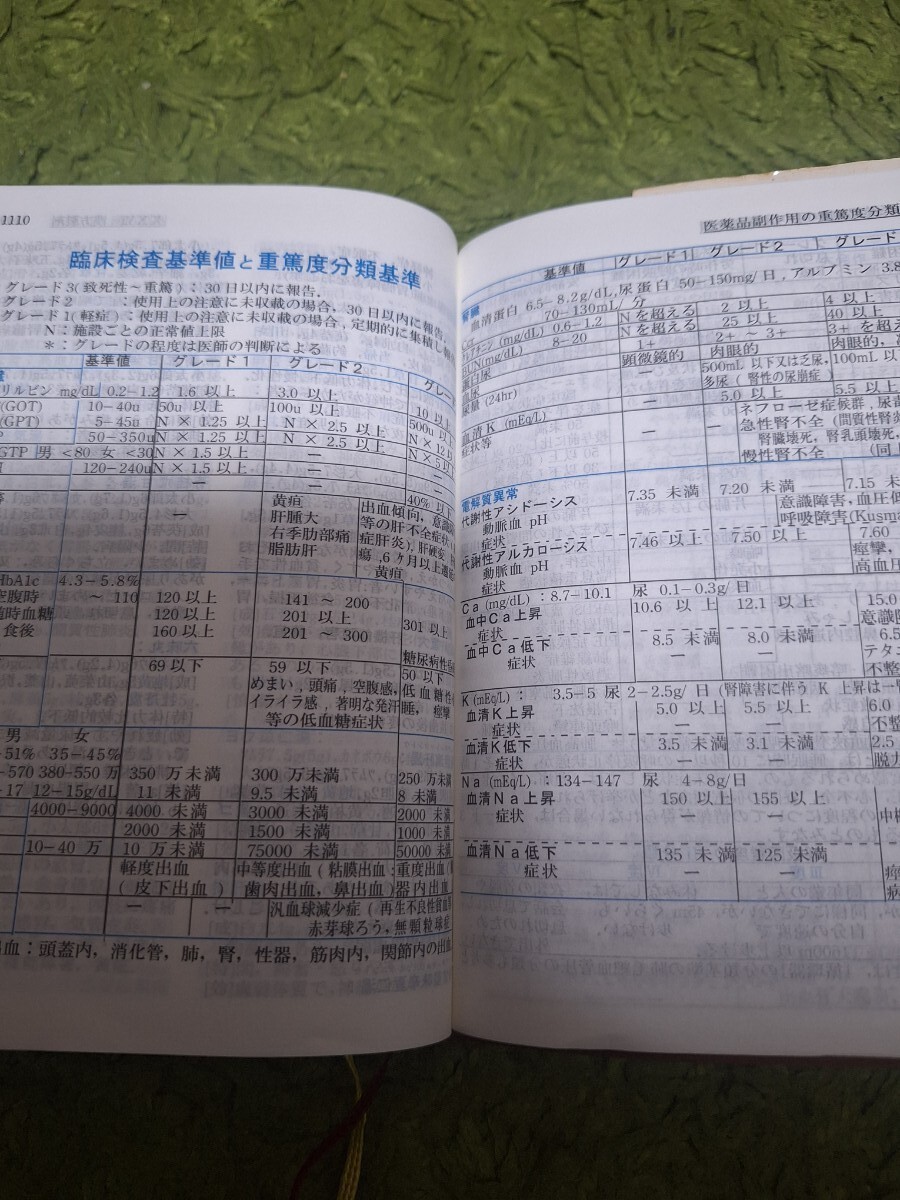 1110
臨床検査基準値と重篤度分類基準
グレード3(致死性～重篤):30日以内に報告.
グレード2 :使用上の注意に未収載の場合,30日以内に報告
グレード1(軽症):使用上の注意に未収載の場合,定期的に集積し報告
N:施設ごとの正常値上限
*:グレードの程度は医師の判断による
基準値 グレード1 グレード2 グレー
リルビン mg/dL 0.2-1.2 1.6 以上 3.0 以上 10 以上
(GOT) 10-40u 50u 以上 100u 以上 500u 以上
(GPT) 5-45u N × 1.25 以上 N × 2.5 以上 N × 12
P 50-350u N × 1.25 以上 N × 2.5 以上 N × 5以
GTP 男 <80 女 <30 N × 1.5 以上 —
120-240u N × 1.5 以上 —
— — 40%以
— 黄疸
肝腫大
右季肋部痛
脂肪肝
出血傾向,意識
等の肝不全症状(
症肝炎),肝硬変,
瘍,6ヶ月以上遷
黄疸
HbA1c 4.3-5.8%
空腹時 ～ 110 120 以上 141 ～ 200
随時血糖 120 以上 201 以上 301 以上
食後 160 以上 201 ～ 300
糖尿病性
69 以下 59 以下 50 以下
めまい,頭痛,空腹感, 低血糖性
イライラ感,著明な発汗 睡,痙攣
等の低血糖症状
男 女
-51% 35-45%
-570 380-550 万 350 万未満 300 万未満 250 万未
-17 12-15g/dL 11 未満 9.5 未満 8 未満
4000-9000 4000 未満 3000 未満 2000 未満
2000 未満 1500 未満 1000 未満
10-40 万 10 万未満 75000 未満 50000 未満
軽度出血 中等度出血(粘膜出血: 重度出血(
(皮下出血) 歯肉出血,鼻出血) 器内出血
— — 汎血球減少症(再生不良性貧血
赤芽球ろう,無顆粒球症
出血:頭蓋内,消化管,肺,腎,性器,筋肉内,関節内の出血
医薬品副作用の重篤度分類
基準値 グレード1 グレード2 グレード
腎臓 血清蛋白 6.5-8.2g/dL,尿蛋白 50-150mg/日,アルブミン 3.8
70-130mL/分
(mg/dL) 0.6-1.2 Nを超える 2 以上 4 以上
BUN(mg/dL) 8-20 Nを超える 25 以上 40 以上
蛋白尿 — 1+ 2+～3+ 3+ を超え
血尿 — 顕微鏡的 肉眼的 肉眼的,
尿量 (24hr) — 500mL 以下又は乏尿, 100mL 以
多尿(腎性の尿崩症)
血清K (mEq/L) — 5.0 以上 5.5 以上
症状等 — — ネフローゼ症候群,尿毒
急性腎不全(間質性腎炎
腎臓壊死,腎乳頭壊死,
慢性腎不全 (同上
電解質異常
代謝性アシドーシス
動脈血 pH 7.35 未満 7.20 未満 7.15 未
症状 意識障害,血圧低
呼吸障害(Kusma
代謝性アルカローシス
動脈血 pH 7.46 以上 7.50 以上 7.60
症状 痙攣,
高血圧
Ca (mg/dL):8.7-10.1 尿 0.1-0.3g/日
血中Ca上昇 10.6 以上 12.1 以上 15.0
症状 — — 意識障
血中Ca低下 8.5 未満 8.0 未満 6.5
症状 — — テタニ
不整
K(mEq/L): 3.5-5 尿 2-2.5g/日(腎障害に伴う K 上昇は一
血清K上昇 5.0 以上 5.5 以上 6.0
症状 — — 不整
血清K低下 3.5 未満 3.1 未満 2.5
症状 — — 脱力
Na (mEq/L):134-147 尿 4-8g/日
血清Na上昇 150 以上 155 以上
症状 — — 中枢
血清Na低下 135 未満 125 未満
症状 — —